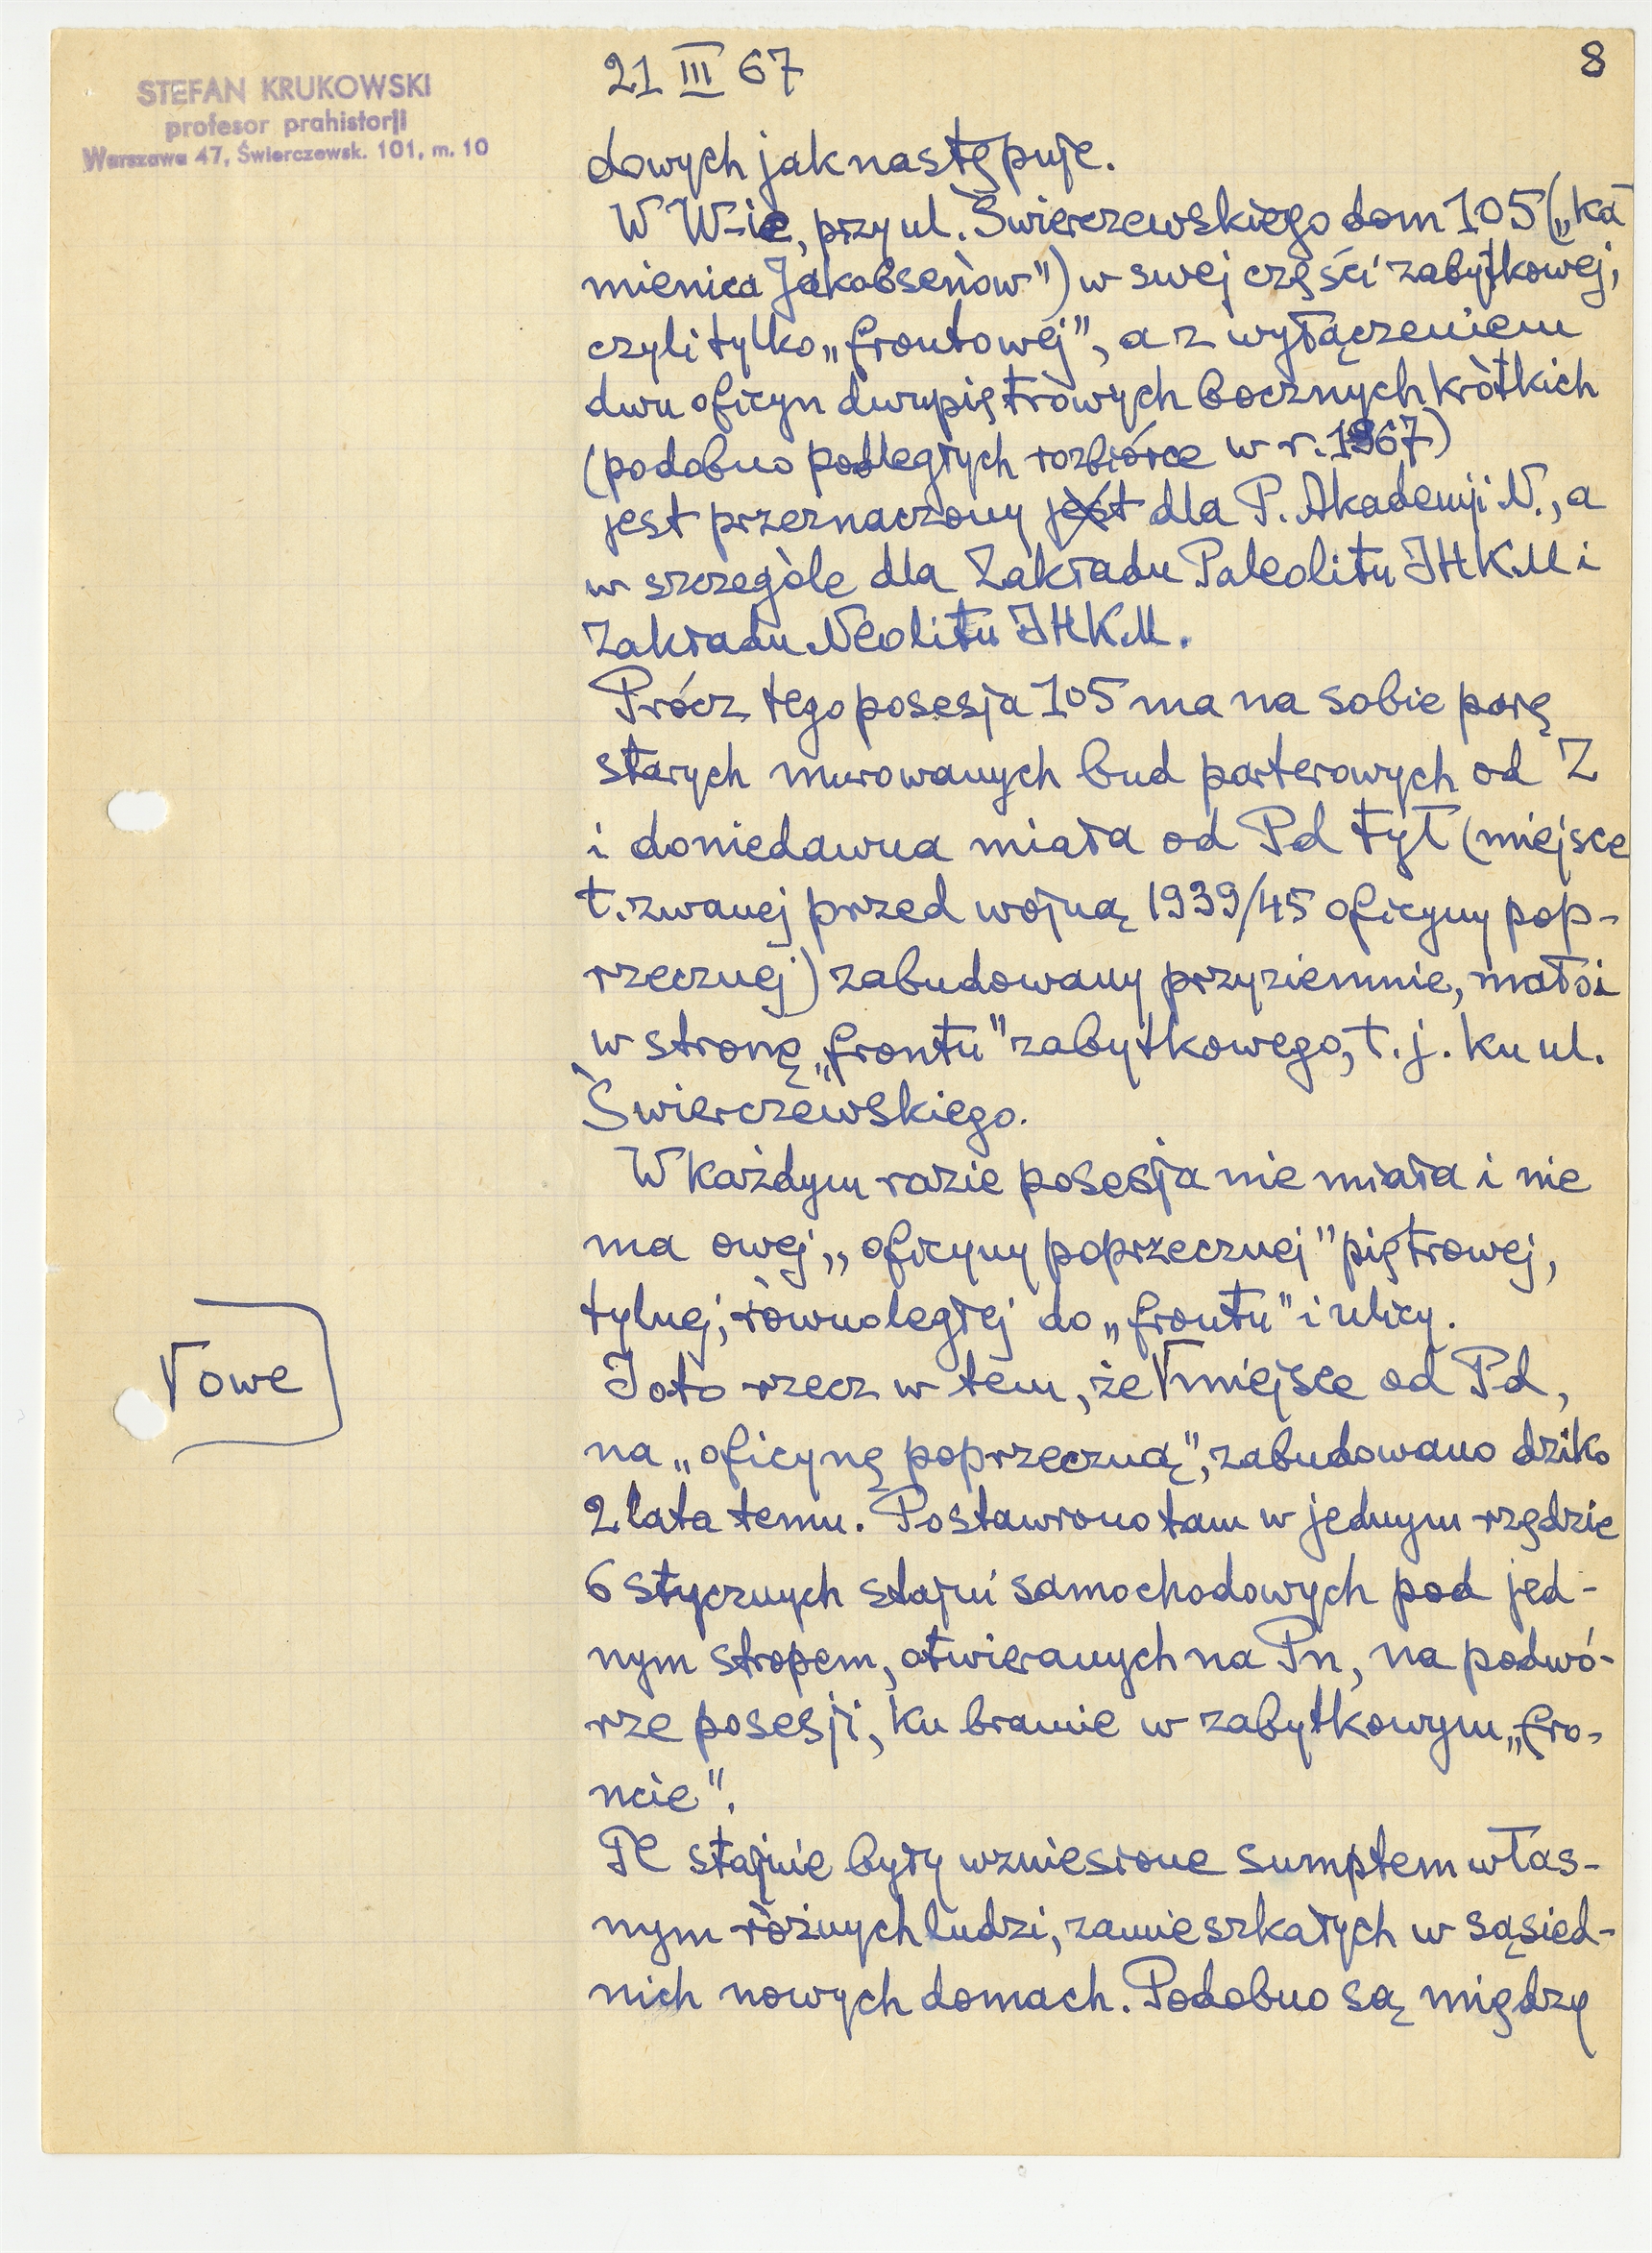 STEFAN KRUKOWSKI
profesor prahistorji
Warszawa 47, Świerczewsk. 101, m. 10
21 III 67
8
dowych jak następuje.
W W-ie, przy ul. Świerczewskiego dom 105 („ka
mienica Jakobsenów") w swej części zabytkowej,
czyli tylko „frontowej", a z wyłączeniem
dwu oficyn dwupiętrowych bocznych krótkich
(podobno podległych rozbiórce w r. 1967)
jest przeznaczony jest dla P. Akademji N., a
w szczególe dla Zakładu Paleolitu IHKM i
Zakładu Neolitu IHKM.
Prócz tego posesja 105 ma na sobie parę
starych murowanych bud parterowych od Z
i doniedawna miała od Pd tył (miejsce
t. zwanej przed wojną 1939/45 oficyny pop-
rzecznej) zabudowany przyziemnie, mało i
w stronę „frontu" zabytkowego, t. j. ku ul.
Świerczewskiego.
W każdym razie posesja nie miała i nie
ma owej „oficyny poprzecznej" piętrowej,
tylnej, równoległej do „frontu" i ulicy.
I oto rzecz w tem, że √miejsce od Pd,
na „oficynę poprzeczną", zabudowano dziko
2 lata temu. Postawiono tam w jednym rzędzie
6 stycznych stajni samochodowych pod jed-
nym stropem, otwieranych na Pn, na podwó-
rze posesji, ku bramie w zabytkowym „fro-
ncie".
Te stajnie były wzniesione sumptem włas-
nym różnych ludzi, zamieszkałych w sąsied-
nich nowych domach. Podobno są między
√owe